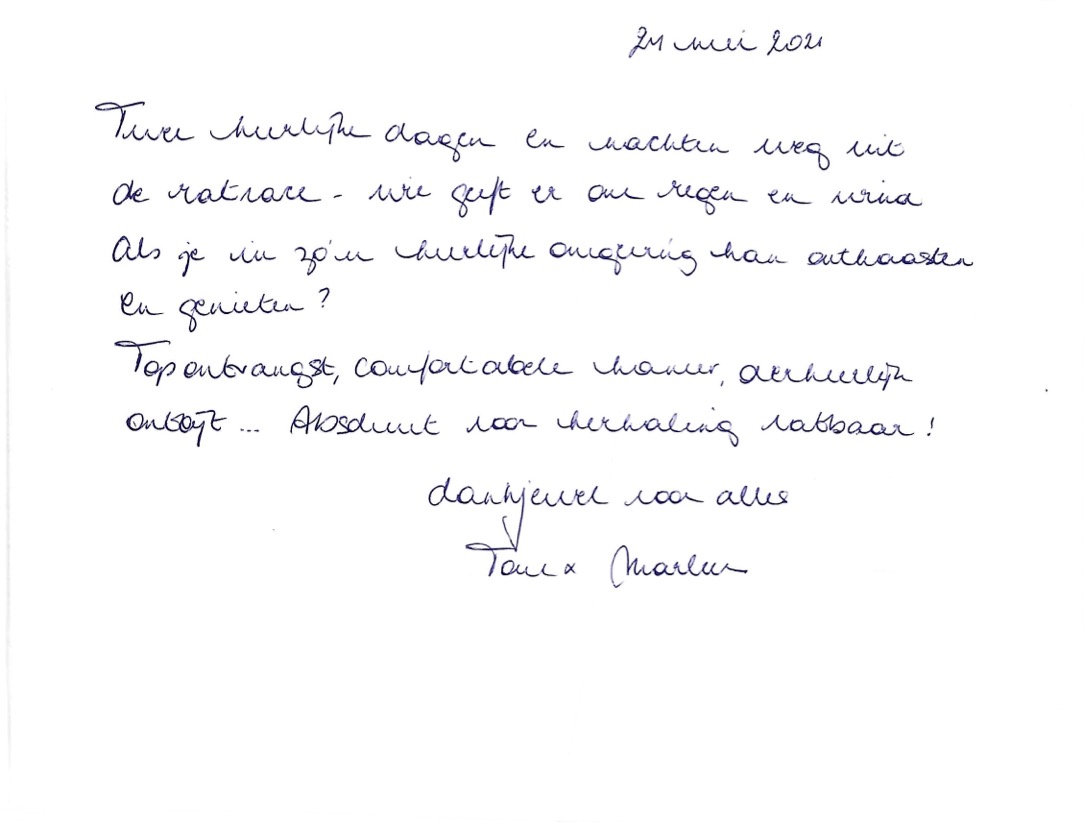 24 mei 2021
Twee heerlijke dagen en nachten weg uit
de ratrace - wie geeft er om regen en wind
Als je in zo'n heerlijke omgeving kan onthaasten
en genieten?
Topontvangst, comfortabele kamer, overheerlijk
ontbijt ... Absoluut voor herhaling vatbaar!
dankjewel voor alles
Tom x